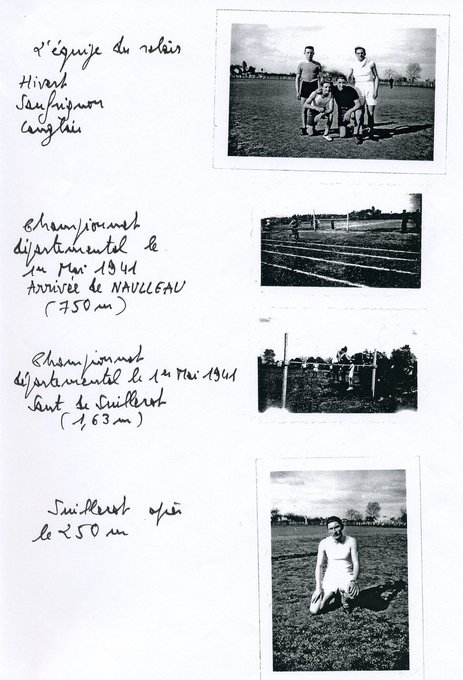 L'équipe du relais
Hivert
Saufrignon
Langlais
Championnat
départemental le
1er Mai 1941
Arrivée de NAULLEAU
(750 m)
Championnat
départemental le 1er Mai 1941
Saut de Suillerot
(1,63 m)
Suillerot après
le 250 m